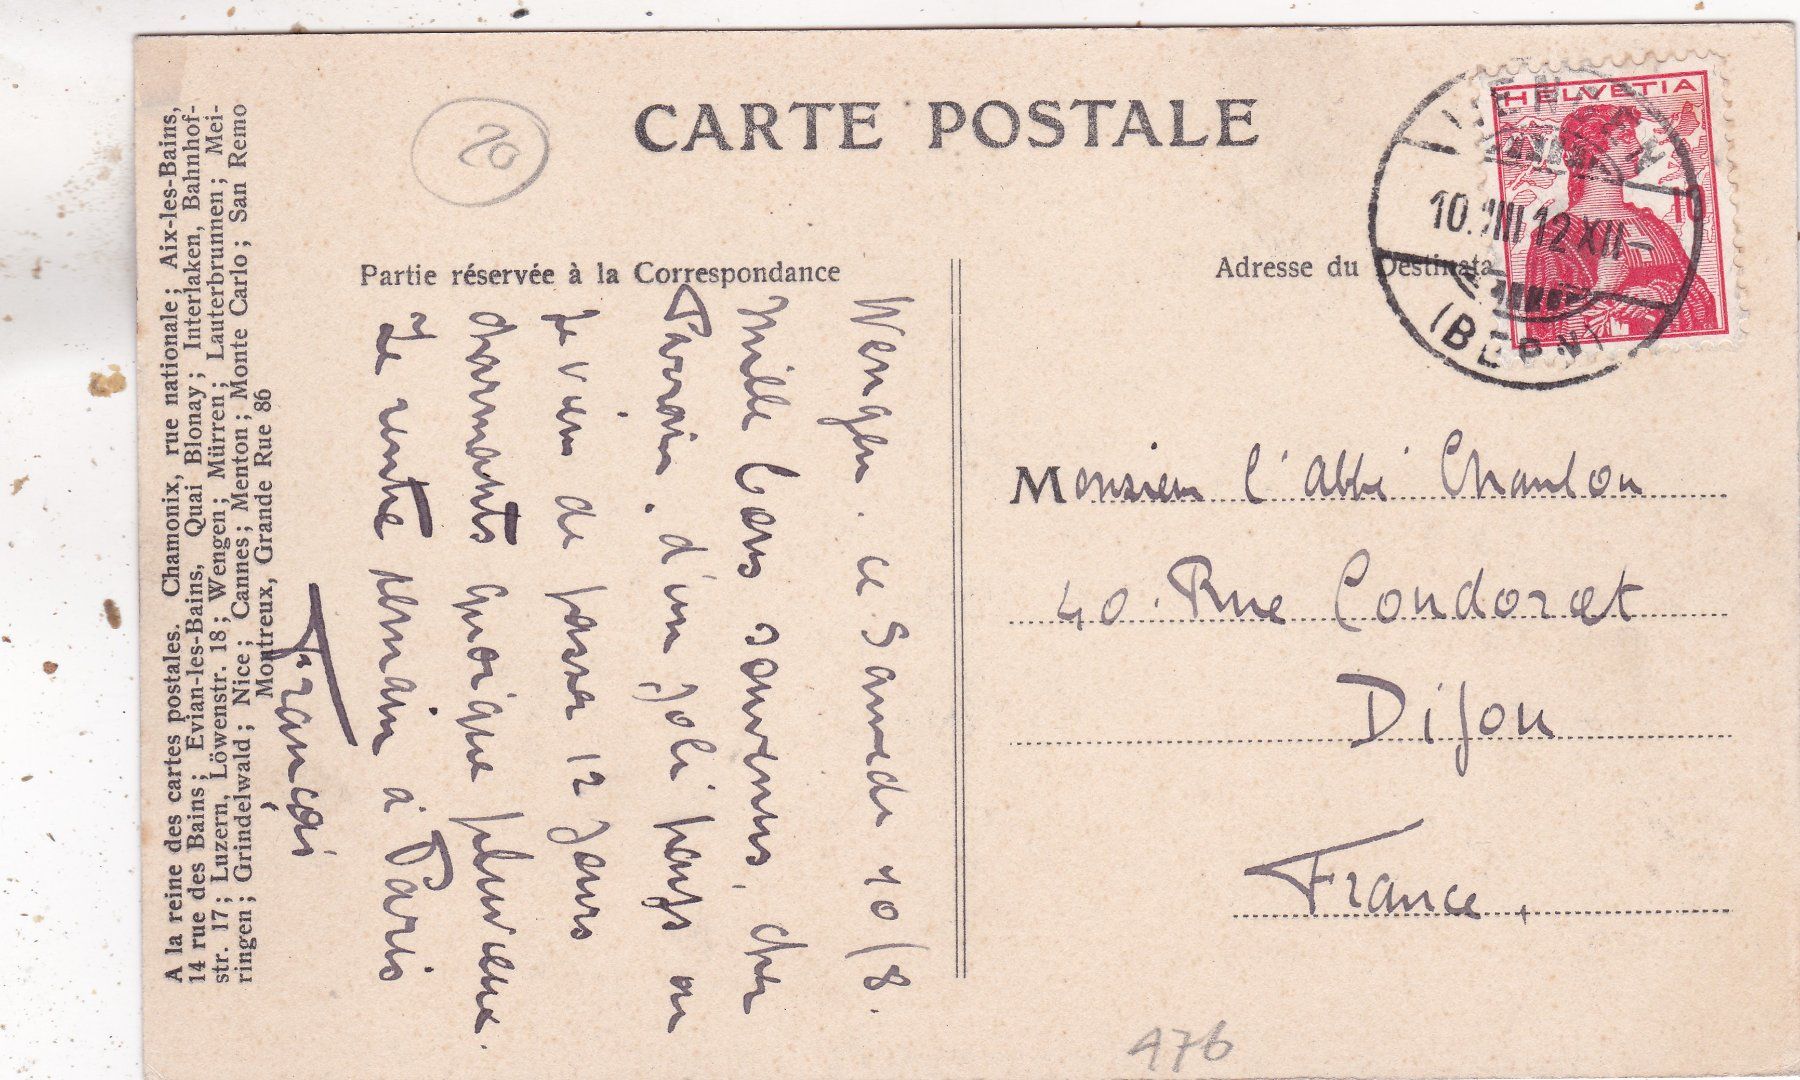 CARTE POSTALE
20
HELVETIA
10
10.VIII 12 XII-
(BERN)
Partie réservée à la Correspondance
Adresse du Destinata
Wengen. ce Samedi 10/8.
Mille bons souvenirs, cher
Parrain. d'un joli pays où
je viens de passer 12 jours
charmants quoique pluvieux.
Je rentre demain à Paris
François
Monsieur l'Abbé Chanlon
40. Rue Condorcet
Dijon
France.
476
A la reine des cartes postales. Chamonix, rue nationale; Aix-les-Bains,
14 rue des Bains; Evian-les-Bains, Quai Blonay; Interlaken, Bahnhof-
str. 17; Luzern, Löwenstr. 18; Wengen; Mürren; Lauterbrunnen; Mei-
ringen; Grindelwald; Nice; Cannes; Menton; Monte Carlo; San Remo
Montreux, Grande Rue 86